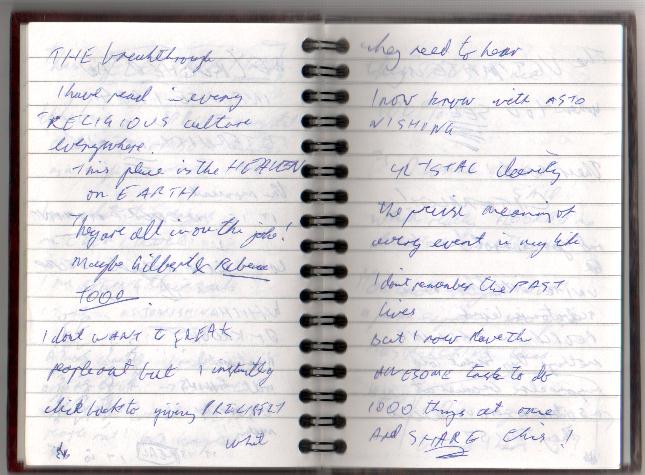 THE breakthrough
I have read in every
RELIGIOUS culture
everywhere.
This place is the HEAVEN
on EARTH
They are all in on the joke!
Maybe Gilbert & Rebecca
TOOO
I dont WANT to FREAK
people out but I instantly
click back to giving PRECISELY
what
they need to hear
I now know with ASTO
NISHING
CRYSTAL clarity
the precise meaning of
every event in my life
I dont remember the PAST
lives
But I now have the
AWESOME task to do
1000 things at once
And SHARE this!